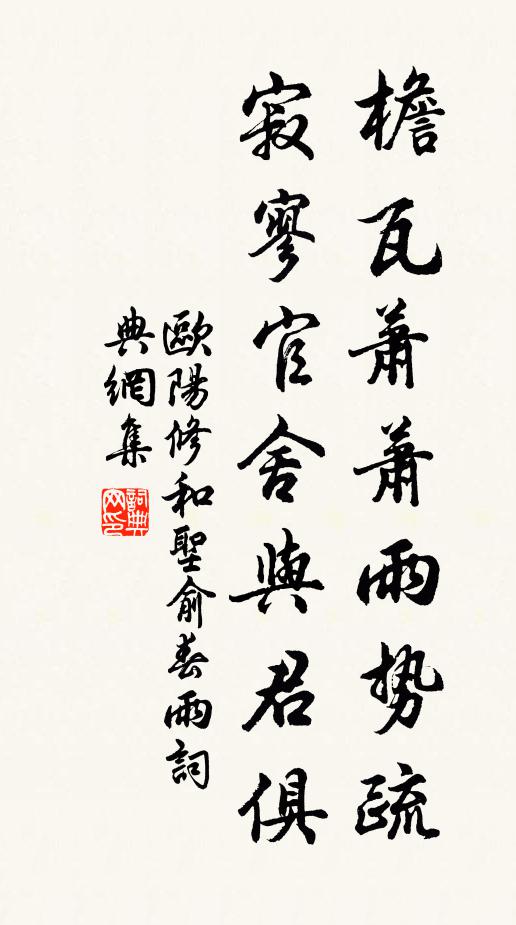 檐瓦蕭蕭雨势疏
寂寥官舍與君俱
歐陽修和聖俞春雨詞
典網集
詞典网印